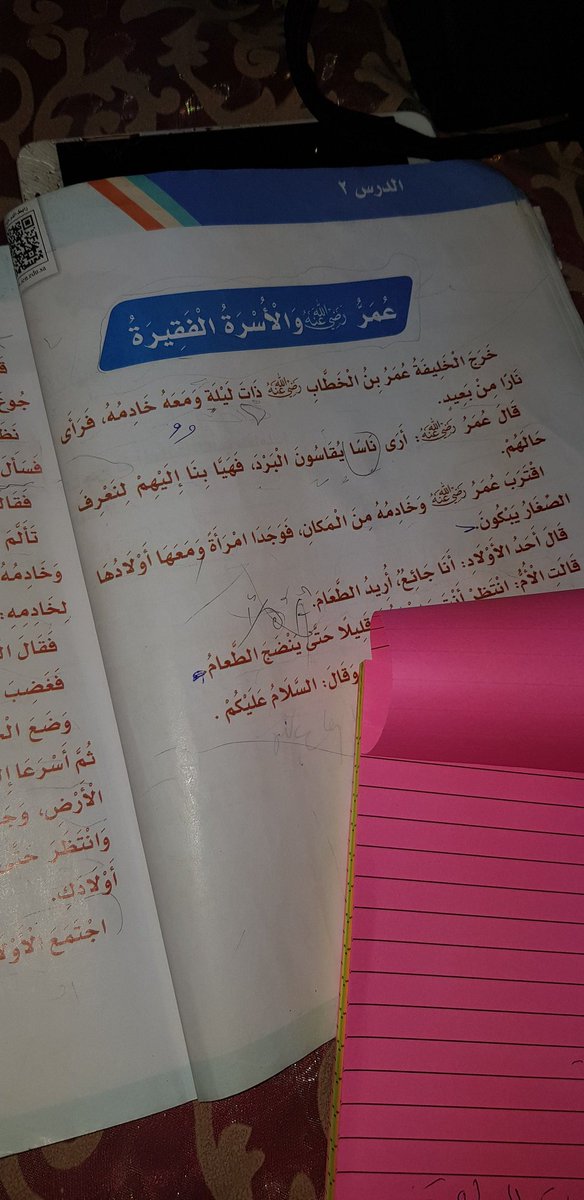 الدرس ٢
عُمَرُ رَضِيَ اللهُ عَنْهُ وَالْأُسْرَةُ الْفَقِيرَةُ
خَرَجَ الْخَلِيفَةُ عُمَرُ بنُ الْخَطَّابِ رَضِيَ اللهُ عَنْهُ ذَاتَ لَيْلَةٍ وَمَعَهُ خَادِمُهُ، فَرَأَى
نَارًا مِنْ بَعِيدٍ.
قَالَ عُمَرُ رَضِيَ اللهُ عَنْهُ: أَرَى نَاسًا يُقَاسُونَ الْبَرْدَ، فَهَيَّا بِنَا إِلَيْهِمْ لِنَعْرِفَ
حَالَهُمْ.
اقْتَرَبَ عُمَرُ رَضِيَ اللهُ عَنْهُ وَخَادِمُهُ مِنَ الْمَكَانِ، فَوَجَدَا امْرَأَةً وَمَعَهَا أَوْلَادُهَا
الصِّغَارُ يَبْكُونَ.
قَالَ أَحَدُ الْأَوْلَادِ: أَنَا جَائِعٌ، أُرِيدُ الطَّعَامَ.
قَالَتِ الْأُمُّ: انْتَظِرْ قَلِيلًا حَتَّى يَنْضَجَ الطَّعَامُ.
وَقَالَ: السَّلَامُ عَلَيْكُمْ.
فَسَأَلَ
تَأَلَّمَ
وَخَادِمُهُ
لِخَادِمِهِ:
فَقَالَ
فَغَضِبَ
وَضَعَ
ثُمَّ أَسْرَعَا
الْأَرْضِ،
وَانْتَظَرَ
أَوْلَادَكِ.
اجْتَمَعَ